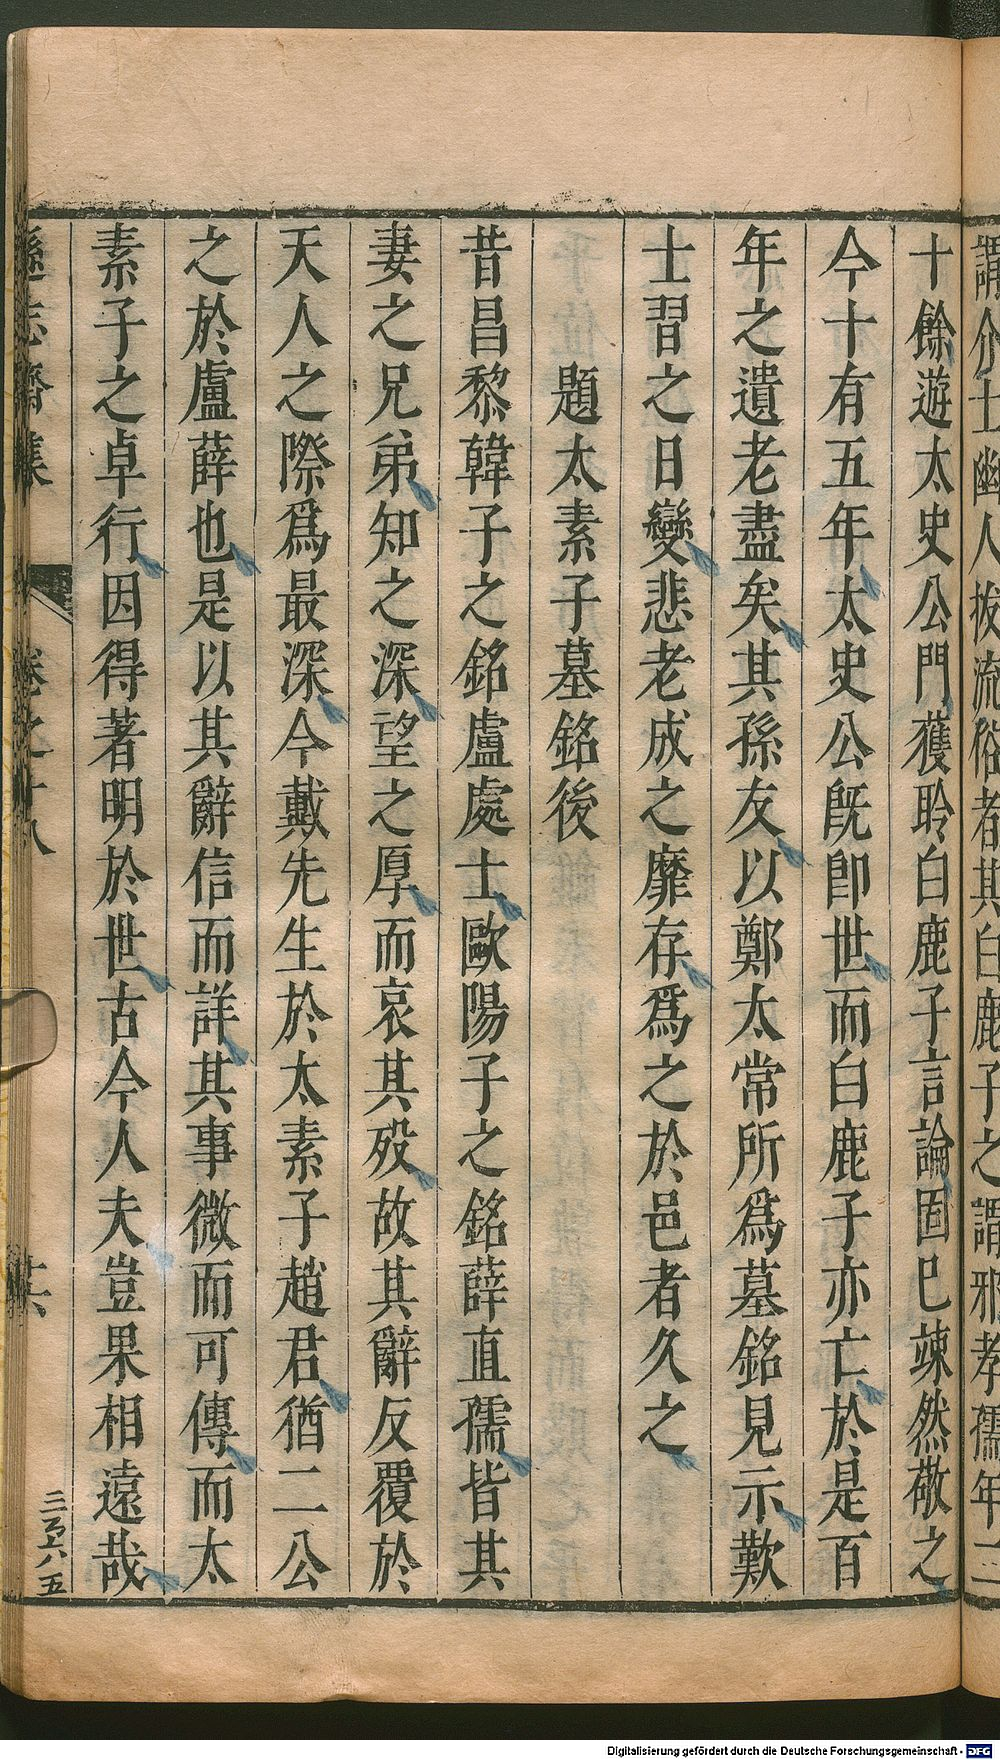 謂介士幽人拔流俗者其白鹿子之謂邪孝孺年二
十餘遊太史公門獲聆白鹿子言論固已竦然敬之
今十有五年太史公旣卽世而白鹿子亦亡於是百
年之遺老盡矣其孫友以鄭太常所爲墓銘見示歎
士習之日變悲老成之靡存爲之於邑者久之
題太素子墓銘後
昔昌黎韓子之銘盧處士歐陽子之銘薛直孺皆其
妻之兄弟知之深望之厚而哀其歿故其辭反覆於
天人之際爲最深今戴先生於太素子趙君猶二公
之於盧薛也是以其辭信而詳其事微而可傳而太
素子之卓行因得著明於世古今人夫豈果相遠哉
遜志齋集
卷之十八
廿六
三百六五
Digitalisierung gefördert durch die Deutsche Forschungsgemeinschaft - DFG